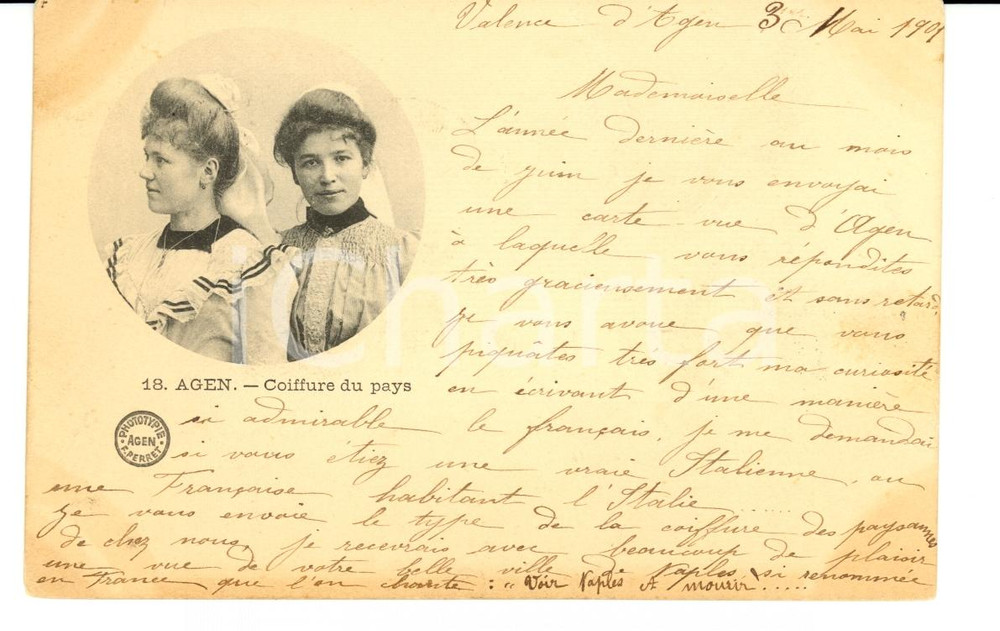 Valence d'Agen 3 Mai 1901
Mademoiselle
L'année dernière au mois
de juin je vous envoyai
une carte vue d'Agen
à laquelle vous répondîtes
très gracieusement et sans retard,
je vous avoue que vous
piquâtes très fort ma curiosité
en écrivant d'une manière
si admirable le français, je me demandai
si vous étiez une vraie Italienne, ou
une Française habitant l'Italie......
Je vous envoie le type de la coiffure des paysannes
de chez nous, je recevrais avec beaucoup de plaisir
une vue de votre belle ville de Naples, si renommée
en France que l'on chante : " Voir Naples et mourir"......
18. AGEN. — Coiffure du pays
PHOTOTYPIE
AGEN
F. PERRET
iCharta